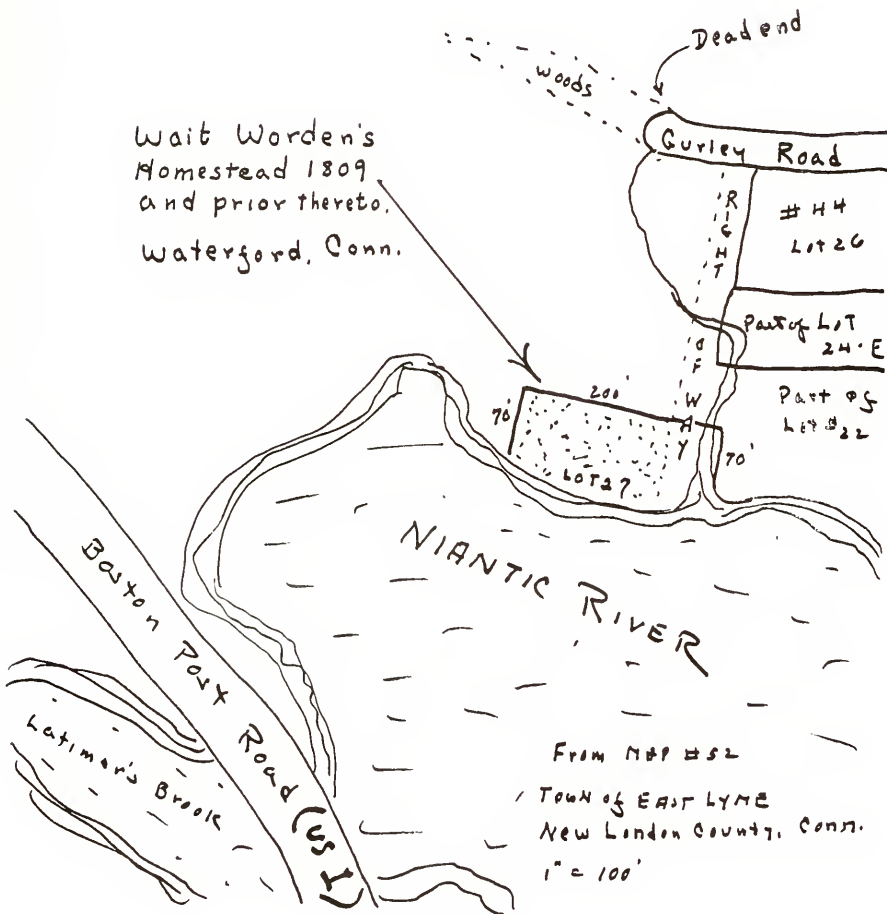 Dead end
woods
Gurley Road
Wait Worden's
Homestead 1809
and prior thereto.
Waterford, Conn.
RIGHT OF WAY
# H4
Lot 26
Part of LOT
24·E
Part of
Lot #22
200'
70'
70'
LOT 27
NIANTIC RIVER
Boston Post Road (US 1)
Latimer's Brook
From MAP #52
Town of EAST LYME
New London County, Conn.
1" = 100'